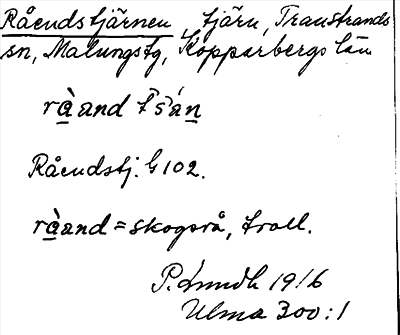 Råendstjärnen, tjärn, Transtrands
sn, Malungs tg, Kopparbergs län
rà̱and t̆s̆án̲
Råendstj. G 102.
rà̱and = skogsrå, troll.
P. Lundh 1916
Ulma 300:1